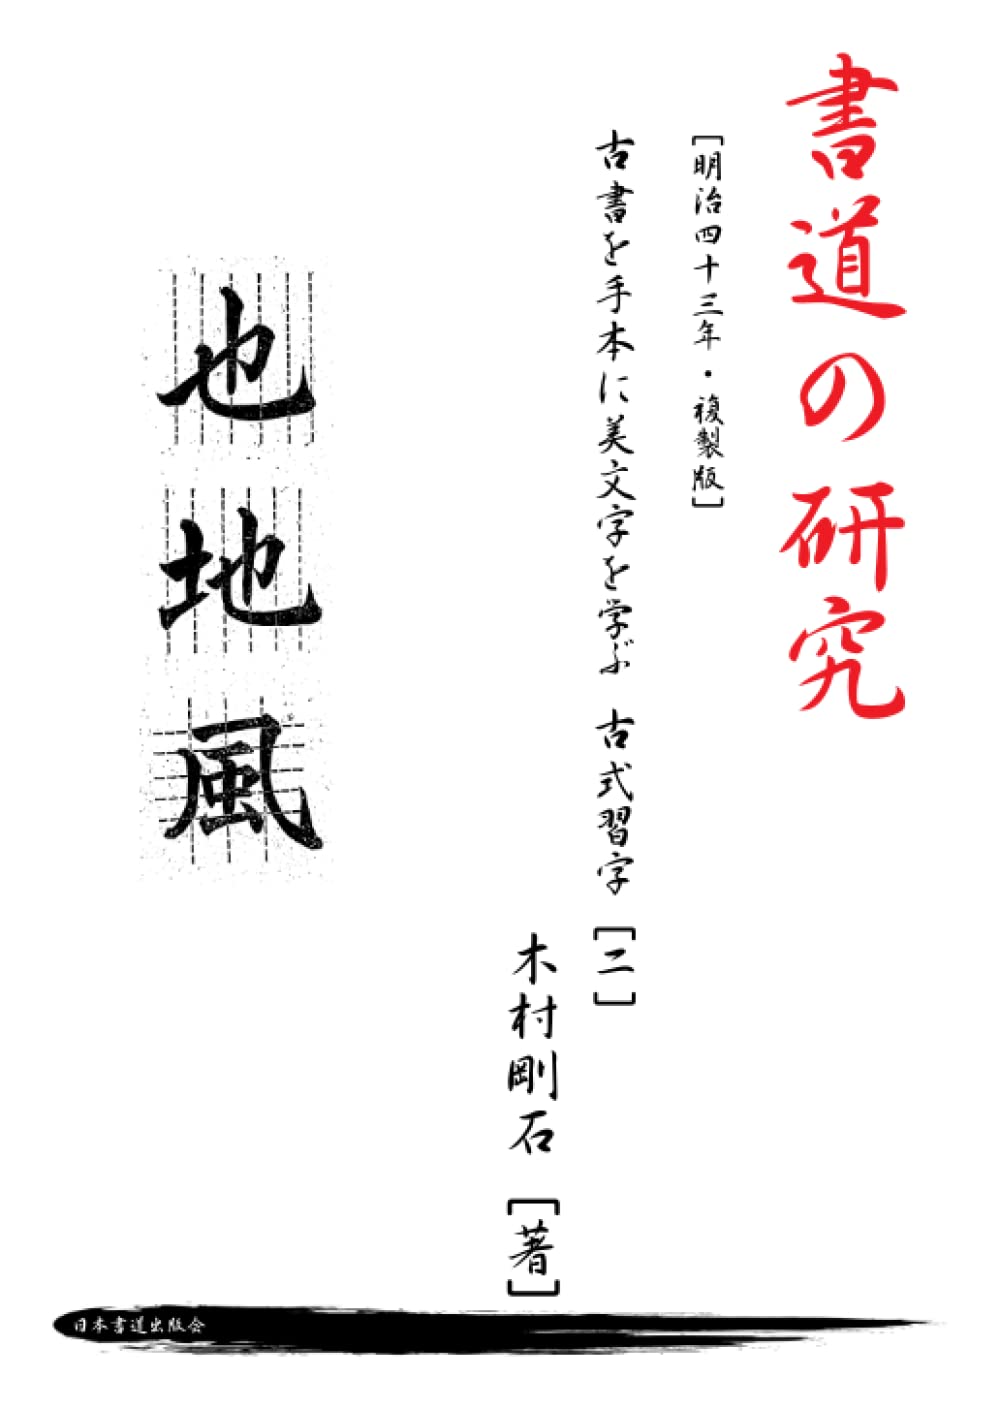 書道の研究
[明治四十三年・複製版]
古書を手本に美文字を学ぶ 古式習字 [二]
木村剛石 [著]
也
地
風
日本書道出版会